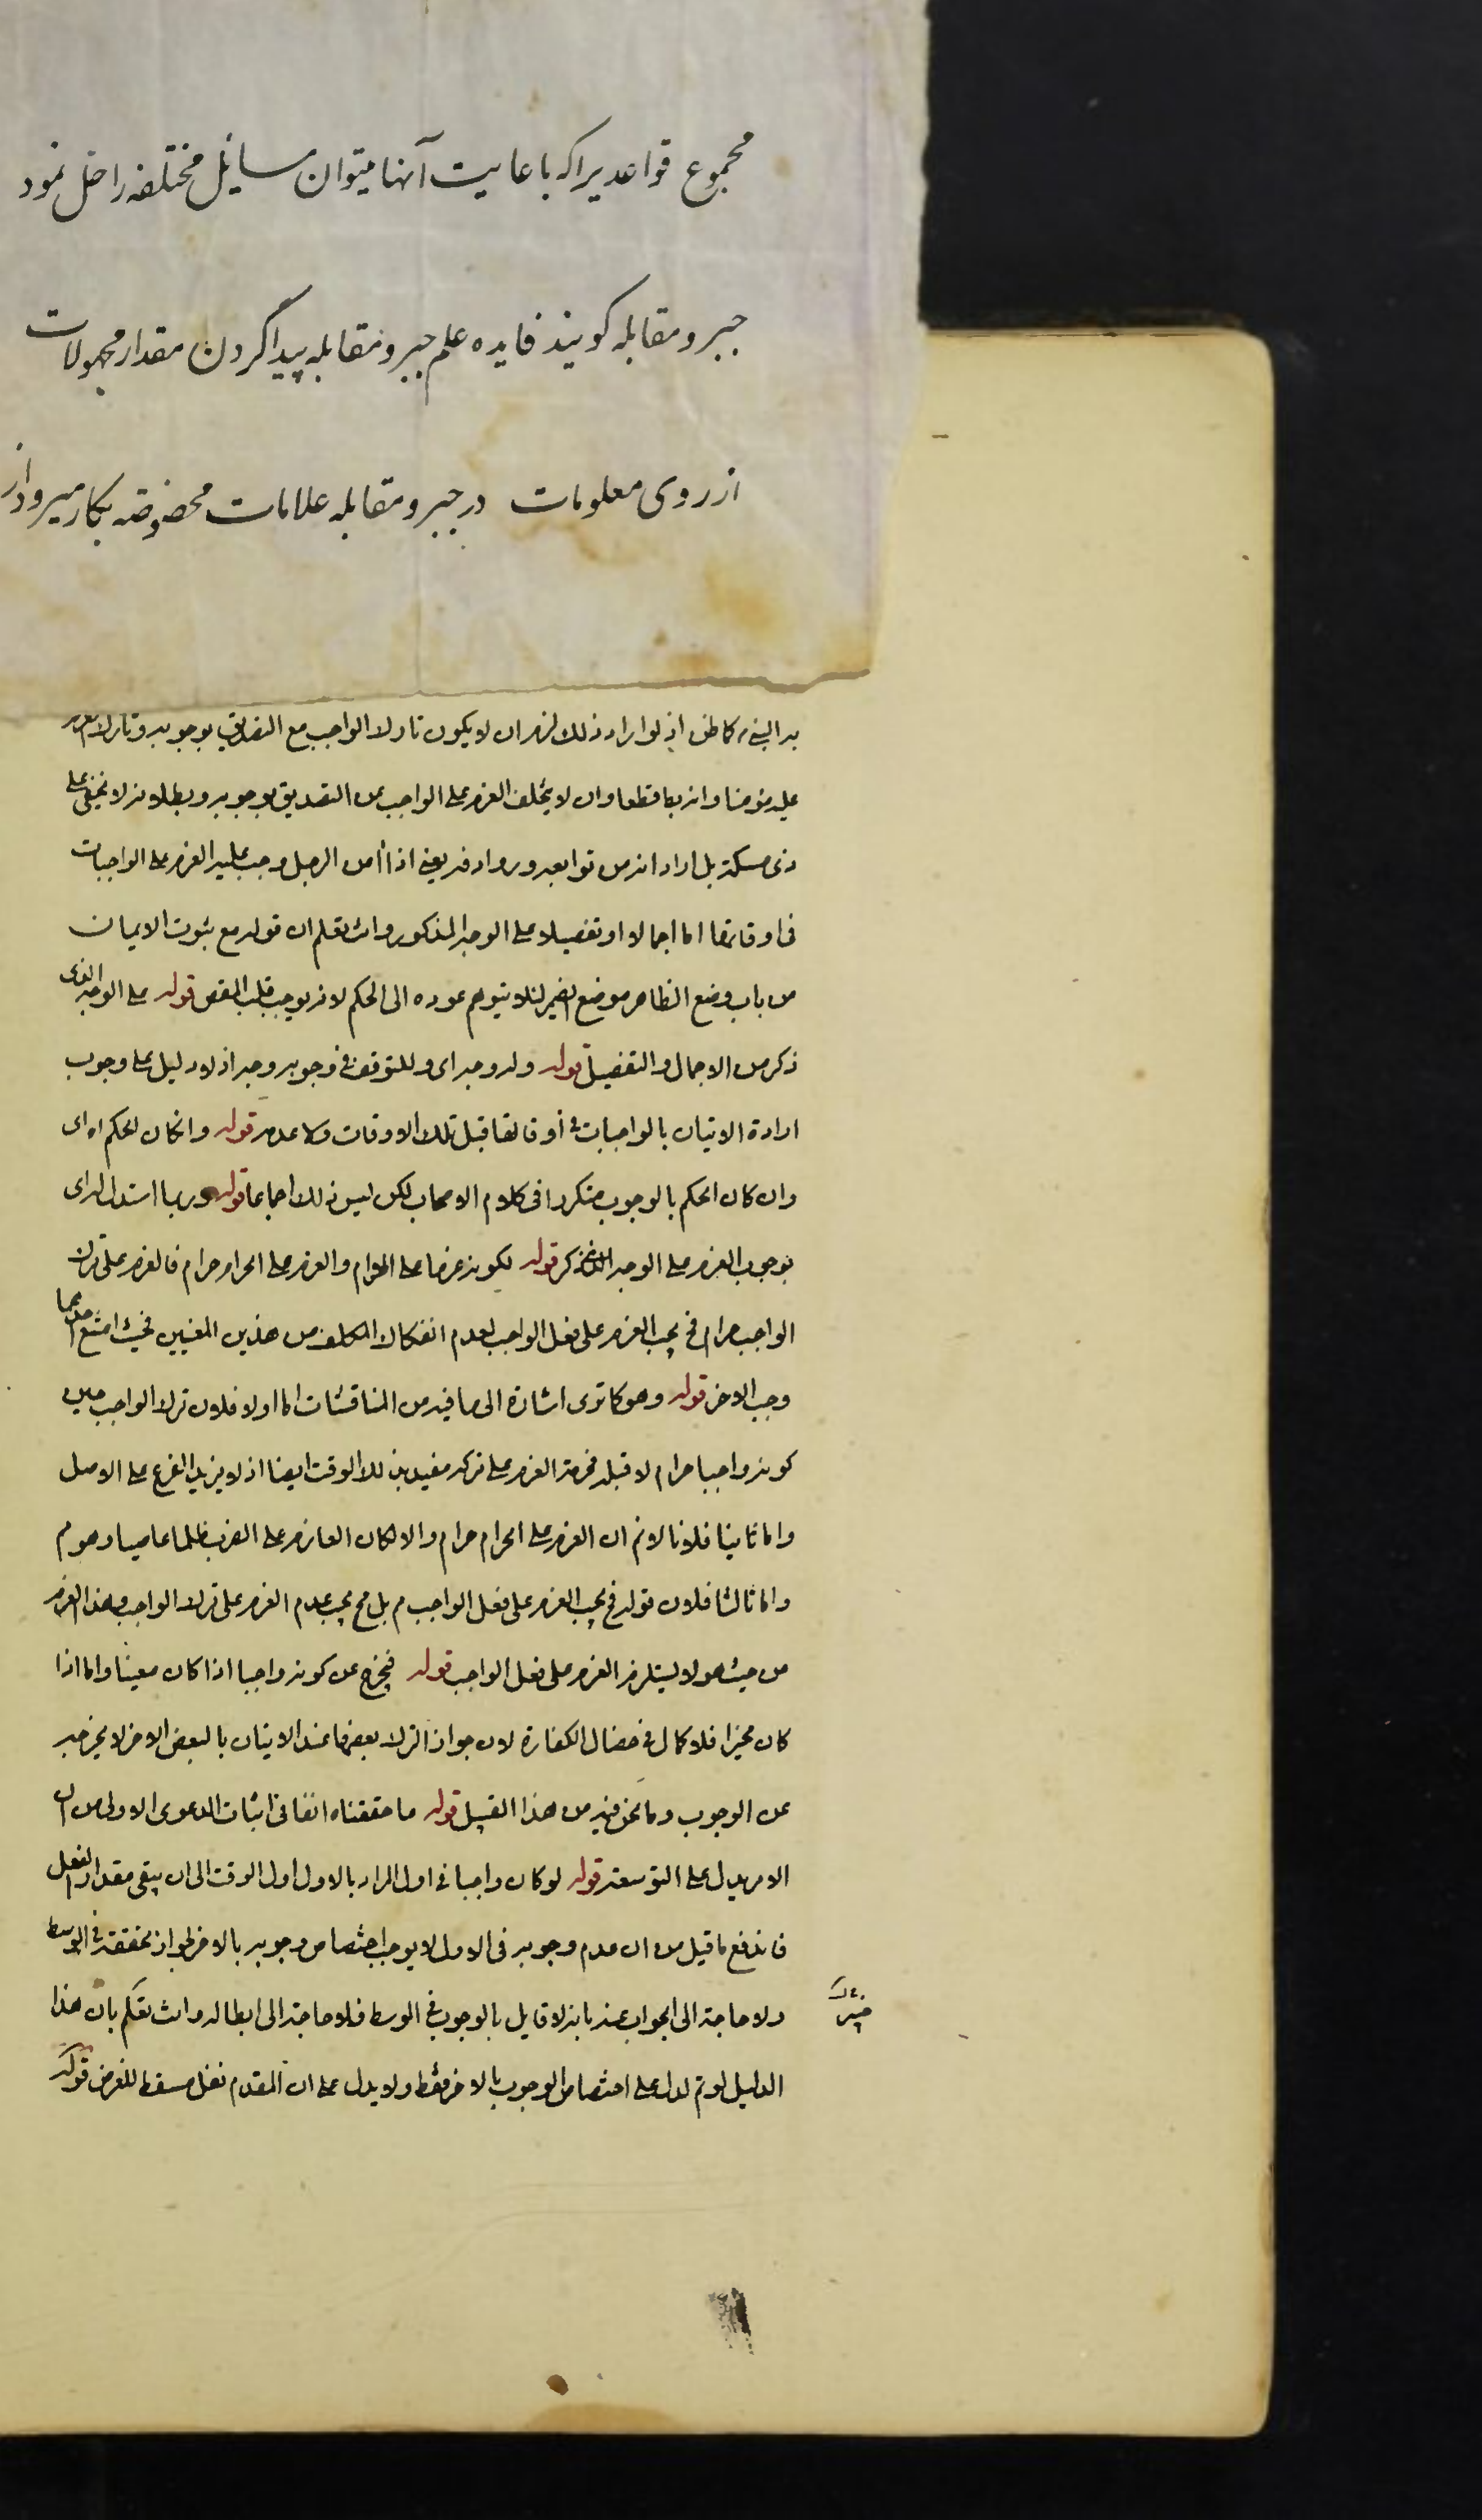 مجموع قواعدیراکه باعایت آنها میتوان مسایل مختلفه راحل نمود
جبر و مقابله کویند فایده علم جبر و مقابله پیدا کردن مقدار مجهولات
از روی معلومات در جبر و مقابله علامات مخصوصه بکار میرود از
کما ظن اذ لو اراد ذلك لزم ان لا یکون تارك الواجب مع التصدیق بوجوبه وتارك العزم
علیه مؤمنا وانه بط قطعا وان لا یتخلف العزم علی الواجب عن التصدیق بوجوبه وبطلانه لا یخفی علی
ذی مسکة بل اراد انه من توابعه وروادفه یعنی اذا آمن الرجل وجب علیه العزم علی الواجبات
فی اوقاتها اما اجمالا او تفصیلا علی الوجه المذکور وانت تعلم ان قوله مع ثبوت الایمان
من باب وضع الظاهر موضع الضمیر لئلا یتوهم عوده الی الحکم لانه یوجب قلب المقص قوله علی الوجه الذی
ذکر من الاجمال والتفصیل قوله وله وجه ای وللتوقف فی وجوبه وجه اذ لا دلیل علی وجوب
ارادة الاتیان بالواجبات فی أوقاتها قبل تلك الاوقات ولا عدمه قوله وانکان لحکم اه ای
وان کان الحکم بالوجوب متکررا فی کلام الاصحاب لکن لیس ذلك اجماعا قوله وربما استدل له ای
بوجوب العزم علی الوجه الذی ذکر قوله لکونه عزما علی الحرام والعزم علی الحرام حرام فالعزم علی ترك
الواجب حرام فح یجب العزم علی فعل الواجب لعدم انفکاك المکلف من هذین المعنیین فحیث امتنع احدهما
وجب الاخر قوله وهو کما تری اشارة الی ما فیه من المناقشات اما اولا فلان ترك الواجب حین
کونه واجبا حرام لا قبله فحرمة العزم علی ترکه مقید بذلك الوقت ایضا اذ لا یزید الفرع علی الاصل
واما ثانیا فلانا لانم ان العزم علی الحرام حرام والا لکان العازم علی الضرب ظلما عاصیا وهو م
واما ثالثا فلان قوله فح یجب العزم علی فعل الواجب م بل مح یجب عدم العزم علی ترك الواجب وهذا العزم
من حیث هو لا یستلزم العزم علی فعل الواجب قوله فیخرج عن کونه واجبا اذا کان معینا واما اذا
کان مخیرا فلا کما فی خصال الکفارة لان جواز الترك بعضها عند الاتیان بالبعض الاخر لا یخرجه
عن الوجوب وما نحن فیه من هذا القبیل قوله ما حققناه انفا فی اثبات الدعوی الاولی من ان
الامر یدل علی التوسعة قوله لو کان واجبا فی اول المراد بالاول اول الوقت الی ان یبقی مقدار الفعل
فاندفع ما قیل من ان عدم وجوبه فی الاول لا یوجب اختصاص وجوبه بالاخر لجواز تحققه فی الوسط
ولا حاجة الی الجواب عنه بانه لا قایل بالوجوب فی الوسط فلا حاجة الی ابطاله وانت تعلم بان هذا
الدلیل لو تم لدل علی اختصاص الوجوب بالاخر فقط ولا یدل علی ان المقدم نفل مسقط للفرض قوله